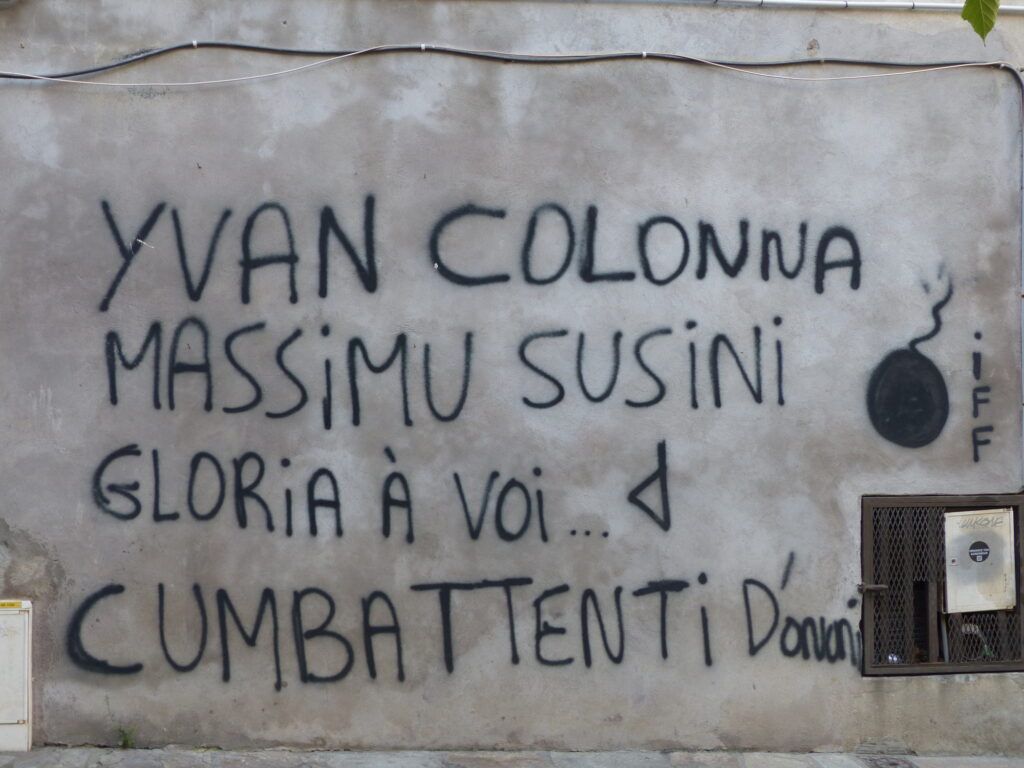 YVAN COLONNA
MASSIMU SUSINI
GLORIA À VOI...
CUMBATTENTI D'ONORI
IFF